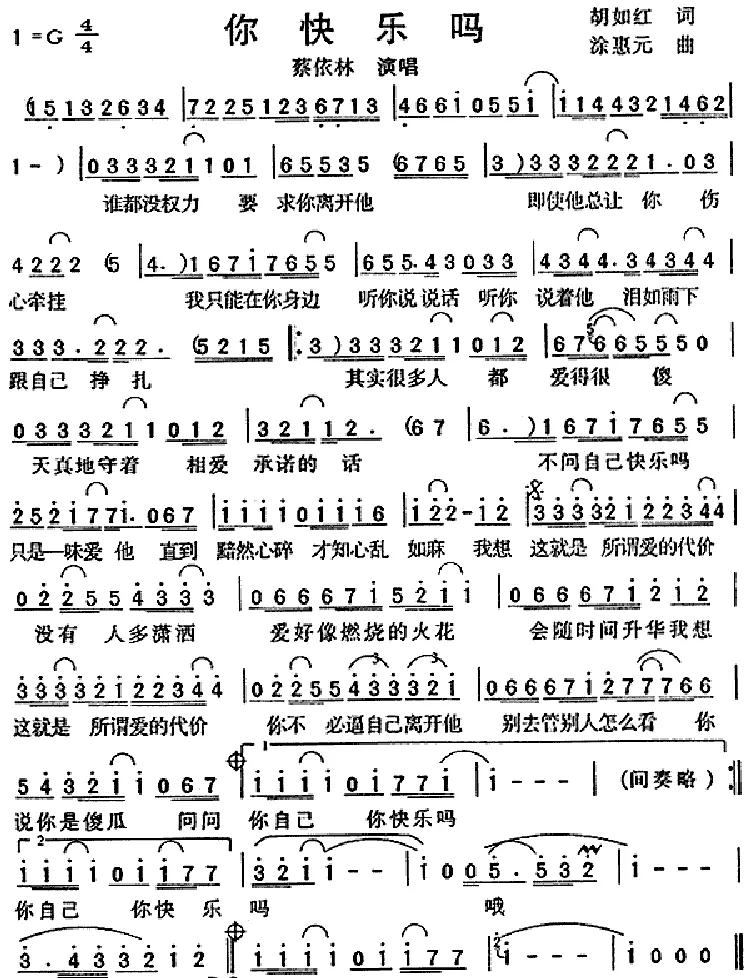 1=G 4/4 你快乐吗 胡如红 词
涂惠元 曲
蔡依林 演唱
(5132634 | 72251236713 | 466i055i | i1144321462
1-) | 0333211101 | 65535 (6765 | 3) 33322221.03
谁都没权力 要 求你离开他 即使他总让 你 伤
4222 (5 | 4.) 16717655 | 655.43033 | 4344.34344
心牵挂 我只能在你身边 听你说 说话 听你 说着他 泪如雨下
333.222. (5215 | 3) 33321101 2 | 6766655550
跟自己 挣 扎 其实很多人 都 爱得很 傻
033321101 2 | 32112. (67 | 6.) 16717655
天真地守着 相爱 承诺的 话 不问自己快乐吗
252177i.067 | iiii01116 | i22-i2 | 33332122344
只是一味爱 他 直到 黯然心碎 才知心乱 如麻 我想 这就是 所谓爱的代价
022554333 | 0666715211 | 0666671212
没有 人多潇洒 爱好像燃烧的火花 会随时间升华我想
33332122344 | 022554333321 | 06667127766
这就是 所谓爱的代价 你不 必逼自己离开他 别去管别人怎么看 你
5432110 67 | iiii0i77i | i--- | (间奏略) :||
说你是傻瓜 问问 你自己 你快乐吗
2
iiii0i177 | 321i-- | i005.532 | i---
你自己 你快 乐 吗 哦
3.433212 | iiii0i177 | i--- | i--- | i000 ||